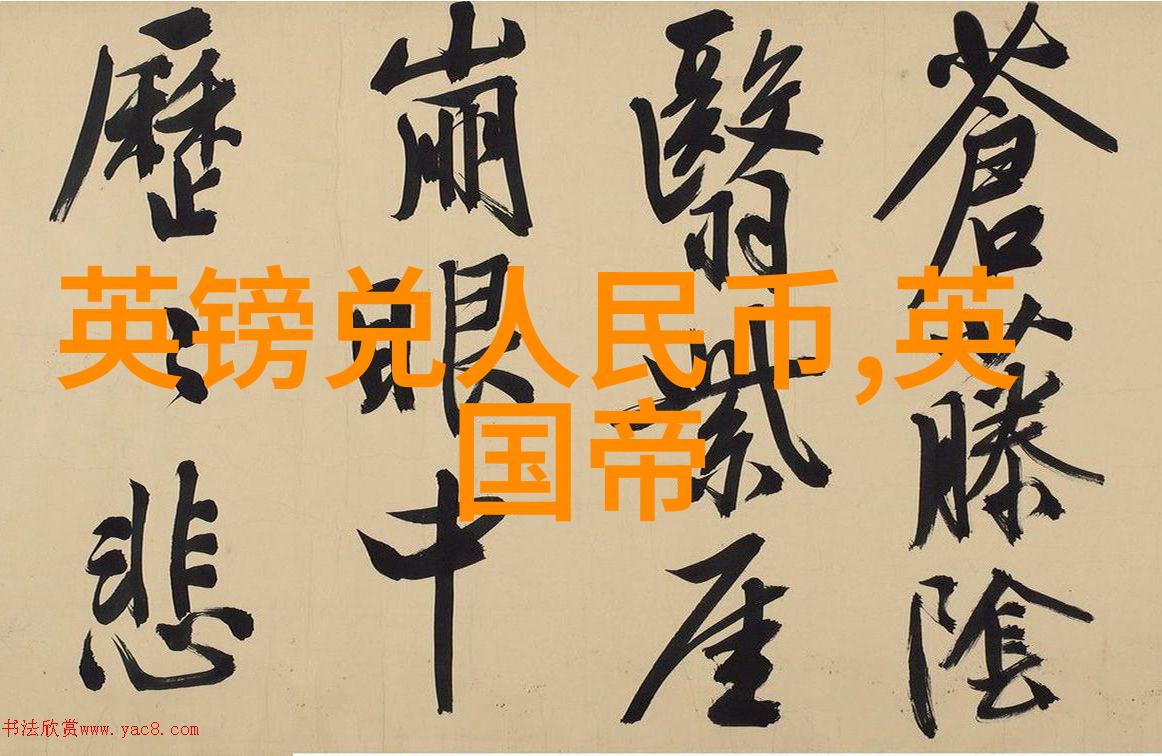 蒼藤陰
翳紫崖
崩眼中
歷〻悲
英镑兑人民币,英
国帝
书法欣赏www.yac8.com